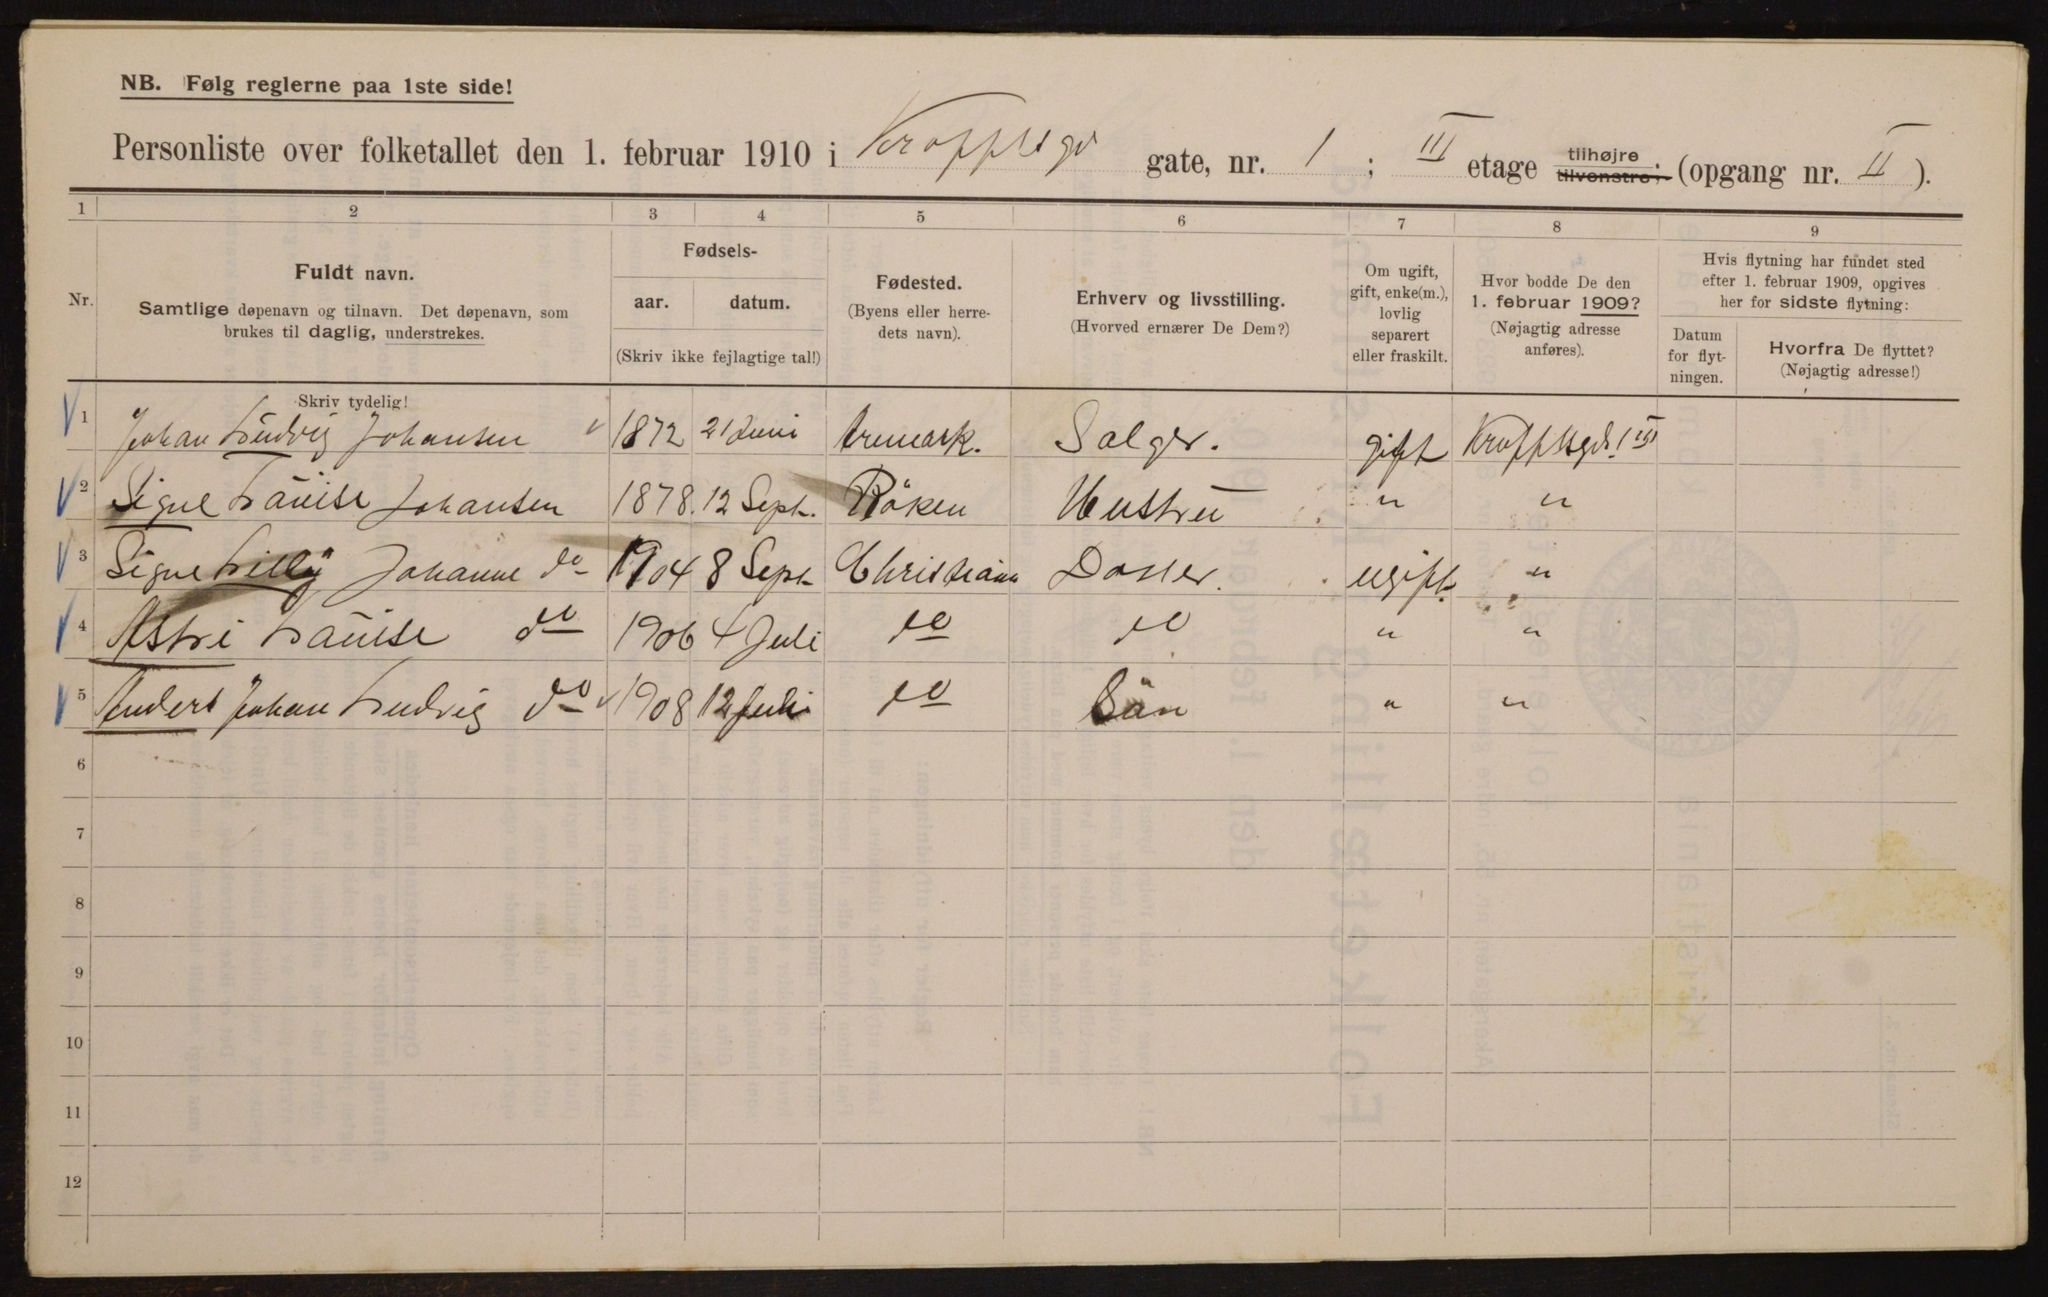 NB. Følg reglerne paa 1ste side!
Personliste over folketallet den 1. februar 1910 i Kroppsgd gate, nr. 1 ; III etage tilhøjre tilvenstre; (opgang nr. II ).
1 2 3 4 5 6 7 8 9
Nr.
Fuldt navn.
Samtlige døpenavn og tilnavn. Det døpenavn, som
brukes til daglig, understrekes.
Skriv tydelig!
Fødsels-
aar. datum.
(Skriv ikke fejlagtige tal!)
Fødested.
(Byens eller herre-
dets navn).
Erhverv og livsstilling.
(Hvorved ernærer De Dem?)
Om ugift,
gift, enke(m.),
lovlig
separert
eller fraskilt.
Hvor bodde De den
1. februar 1909?
(Nøjagtig adresse
anføres).
Hvis flytning har fundet sted
efter 1. februar 1909, opgives
her for sidste flytning:
Datum
for flyt-
ningen.
Hvorfra De flyttet?
(Nøjagtig adresse!)
1 Johan Ludvig Johansen 1872 21 Juni Aremark. Sælger. gift Kroppsgd. 1 III
2 Signe Louise Johansen 1878. 12 Sept. Röken Hustru " "
3 Signe Lilly Johanne do 1904 8 Sept Christiania Datter. ugift. "
4 Astri Louise do 1906 4 Juli do do " "
5 Anders Johan Ludvig do 1908 12 Juli do Sön " "
6
7
8
9
10
11
12